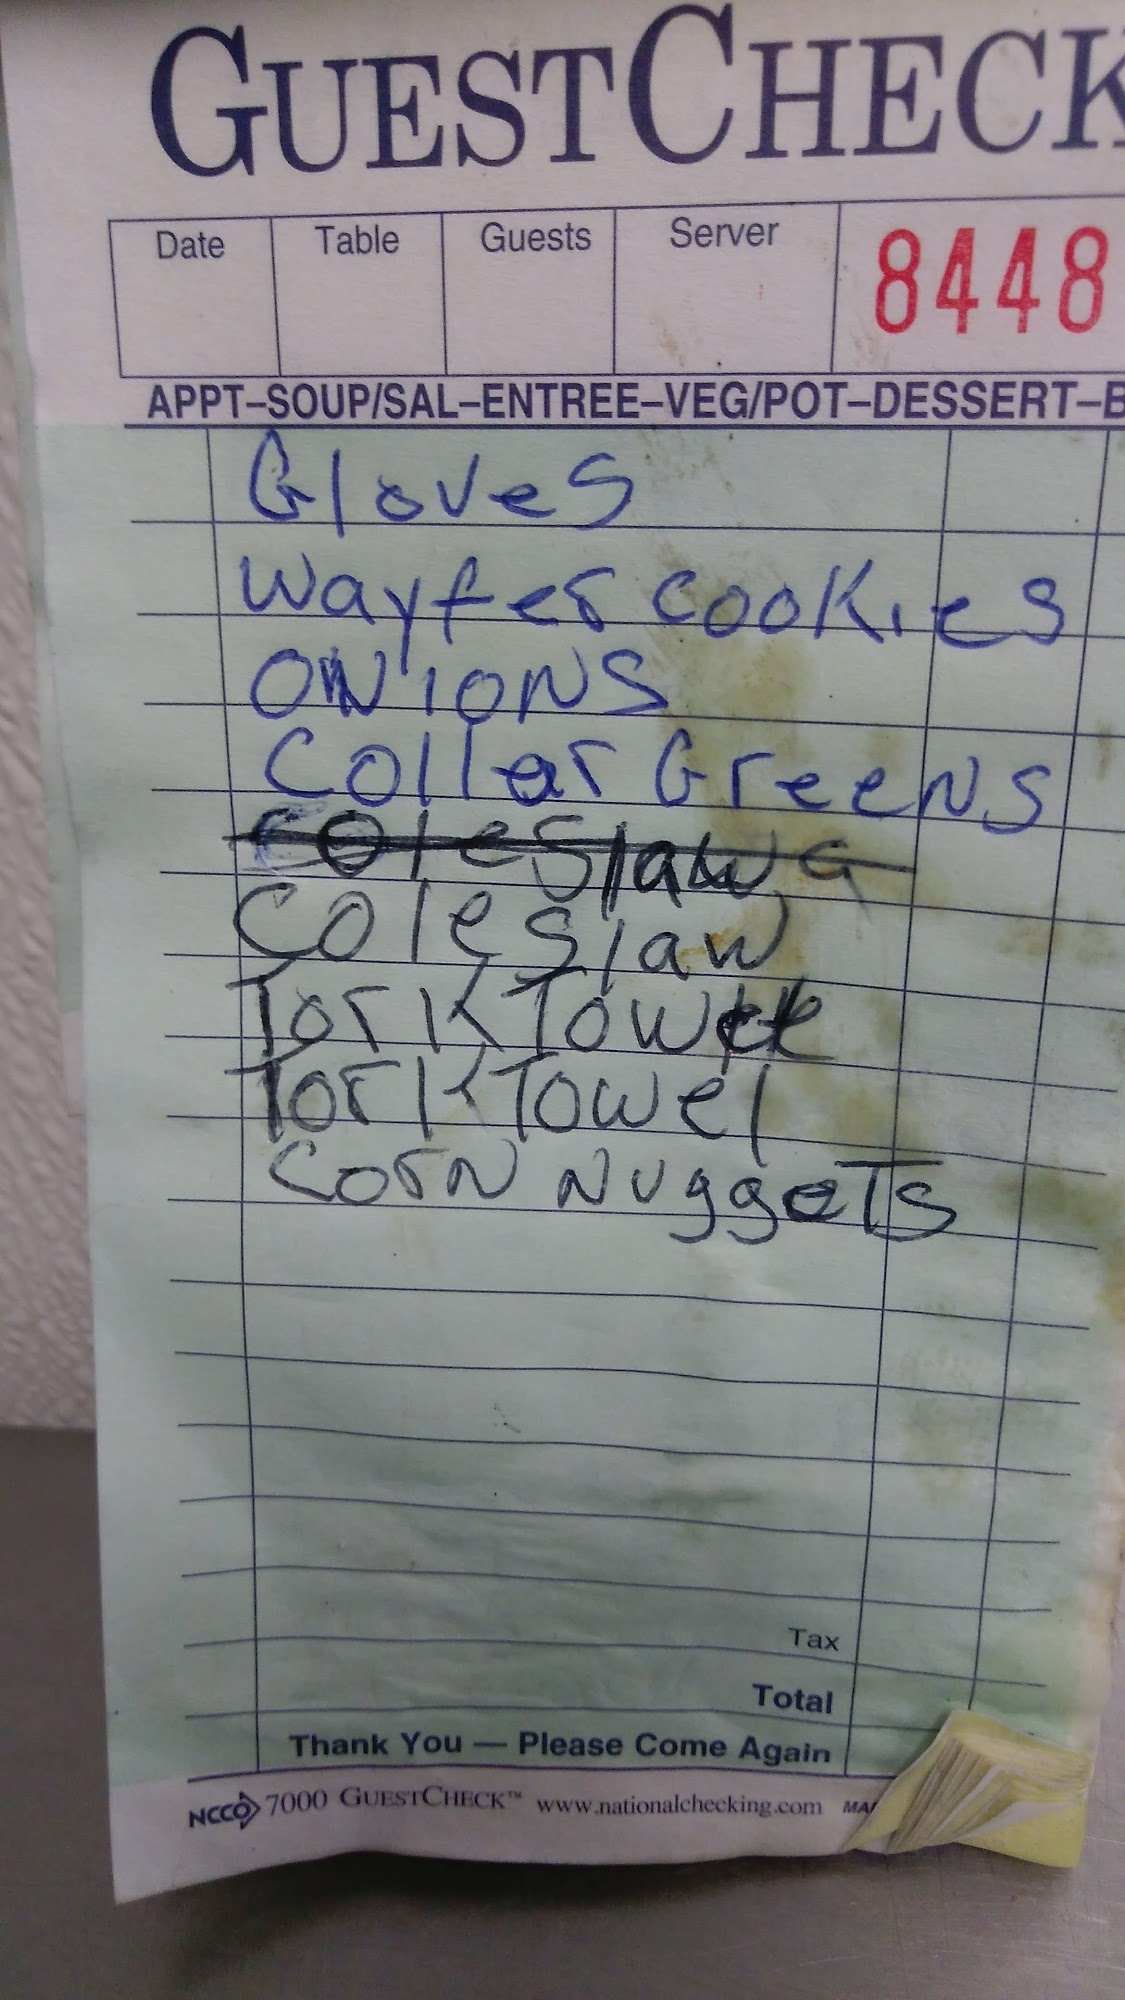 GUESTCHECK
Date Table Guests Server 8448
APPT–SOUP/SAL–ENTREE–VEG/POT–DESSERT–B
Gloves
Wayfer cookies
ONIONS
Collar Greens
Coleslaw G
Coleslaw
Tork Towel
Tork Towel
CorN Nuggets
Tax
Total
Thank You — Please Come Again
NCCO 7000 GUESTCHECK™ www.nationalchecking.com MA